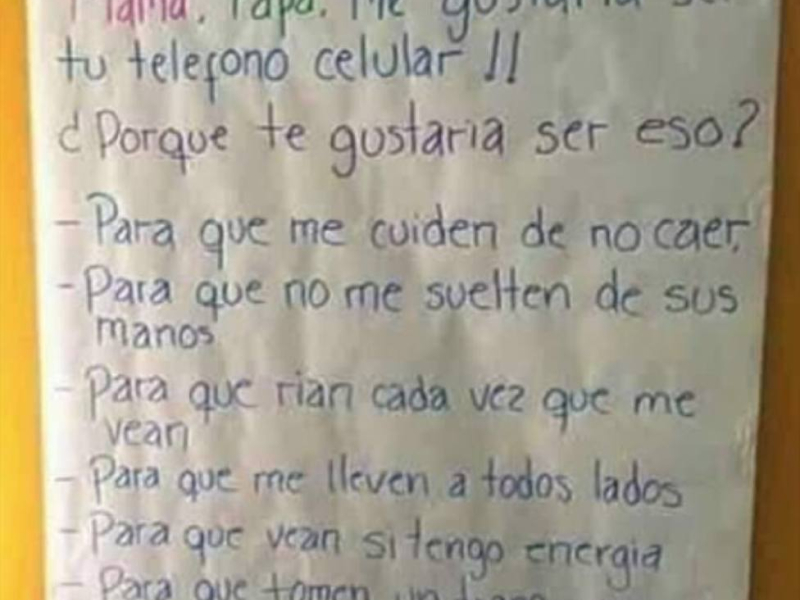 Mama, Papa. Me gustaria ser
tu telefono celular !!
¿Porque te gustaria ser eso?
- Para que me cuiden de no caer,
- Para que no me suelten de sus
manos
- Para que rian cada vez que me
vean
- Para que me lleven a todos lados
- Para que vean si tengo energia
- Para que tomen un